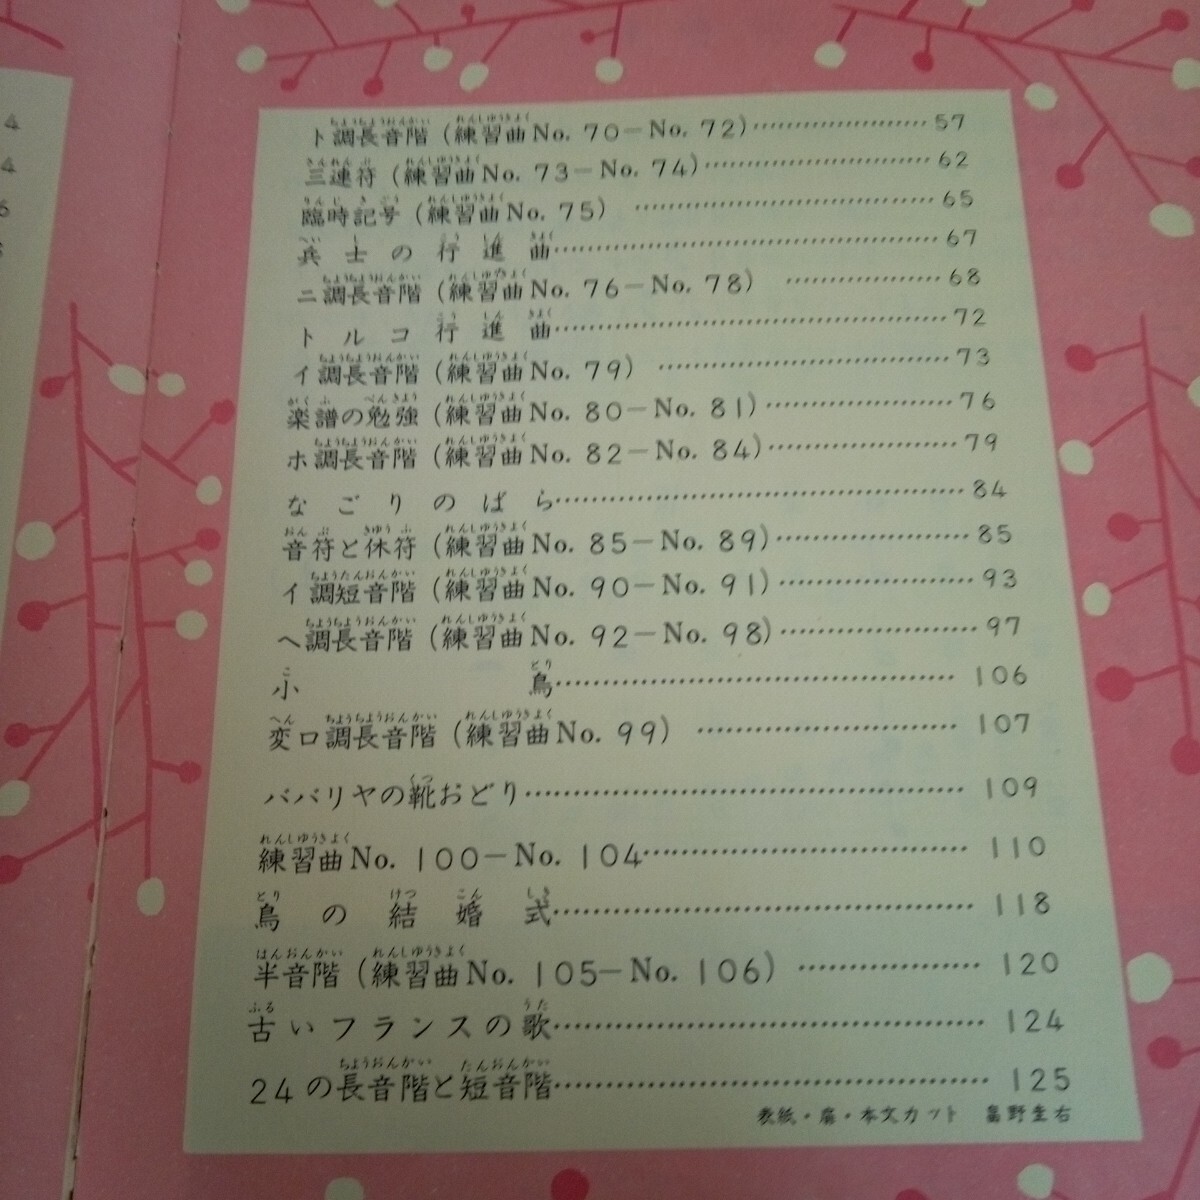 4
4
6
ト調長音階（練習曲No. 70－No. 72）…………………57
三連符（練習曲No. 73－No. 74）…………………62
臨時記号（練習曲No. 75）…………………65
兵士の行進曲…………………67
ニ調長音階（練習曲No. 76－No. 78）…………………68
トルコ行進曲…………………72
イ調長音階（練習曲No. 79）…………………73
楽譜の勉強（練習曲No. 80－No. 81）…………………76
ホ調長音階（練習曲No. 82－No. 84）…………………79
なごりのばら…………………84
音符と休符（練習曲No. 85－No. 89）…………………85
イ調短音階（練習曲No. 90－No. 91）…………………93
ヘ調長音階（練習曲No. 92－No. 98）…………………97
小鳥…………………106
変ロ調長音階（練習曲No. 99）…………………107
ババリヤの靴おどり…………………109
練習曲No. 100－No. 104…………………110
鳥の結婚式…………………118
半音階（練習曲No. 105－No. 106）…………………120
古いフランスの歌…………………124
24の長音階と短音階…………………125
表紙・扉・本文カット　畠野圭右